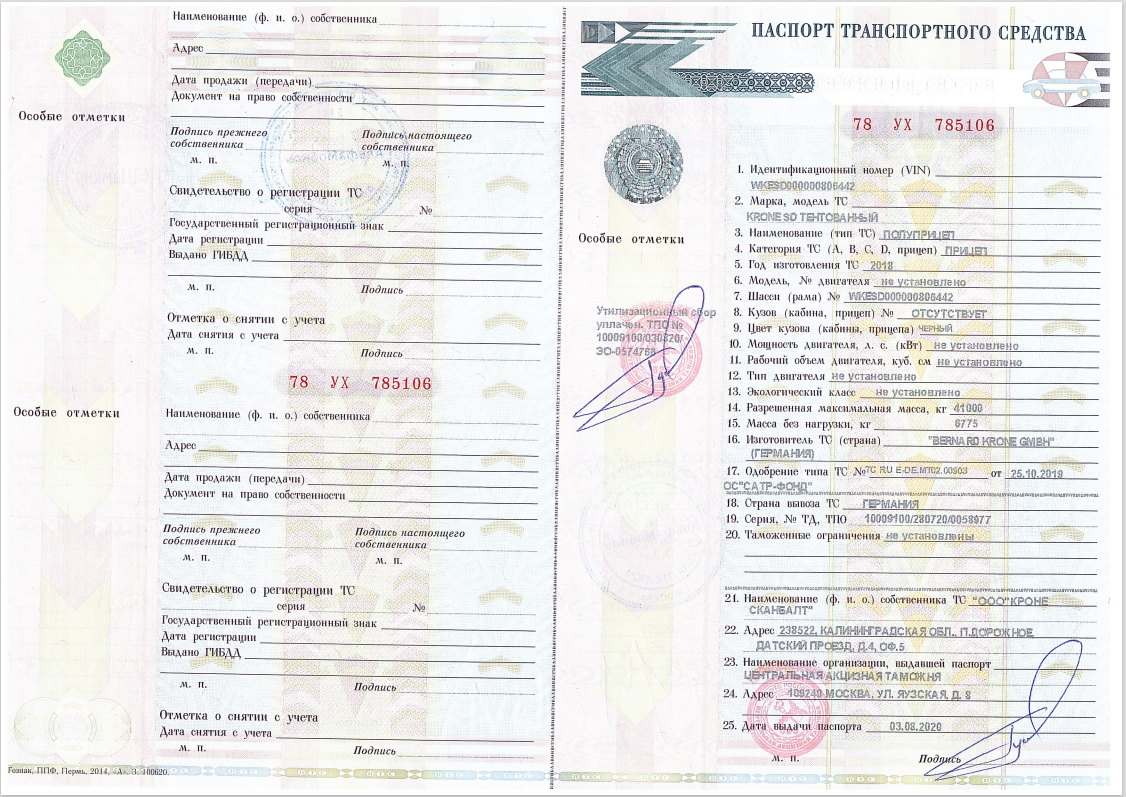 Наименование (ф. и. о.) собственника
Адрес
Дата продажи (передачи)
Документ на право собственности
Особые отметки
Подпись прежнего собственника
Подпись настоящего собственника
м. п.
м. п.
Свидетельство о регистрации ТС
серия №
Государственный регистрационный знак
Дата регистрации
Выдано ГИБДД
м. п. Подпись
Отметка о снятии с учета
Дата снятия с учета
м. п. Подпись
78 УХ 785106
Особые отметки
Наименование (ф. и. о.) собственника
Адрес
Дата продажи (передачи)
Документ на право собственности
Подпись прежнего собственника
Подпись настоящего собственника
м. п.
м. п.
Свидетельство о регистрации ТС
серия №
Государственный регистрационный знак
Дата регистрации
Выдано ГИБДД
м. п. Подпись
Отметка о снятии с учета
Дата снятия с учета
м. п. Подпись
Гознак, ППФ, Пермь, 2014, «А». З. 100620.
ПАСПОРТ ТРАНСПОРТНОГО СРЕДСТВА
78 УХ 785106
Особые отметки
Утилизационный сбор
уплачен. ТПО №
10009100/030820/
ЭО-0574768
1. Идентификационный номер (VIN)
WKESD000000806442
2. Марка, модель ТС
KRONE SD ТЕНТОВАННЫЙ
3. Наименование (тип ТС) ПОЛУПРИЦЕП
4. Категория ТС (А, В, С, D, прицеп) ПРИЦЕП
5. Год изготовления ТС 2018
6. Модель, № двигателя не установлено
7. Шасси (рама) № WKESD000000806442
8. Кузов (кабина, прицеп) № ОТСУТСТВУЕТ
9. Цвет кузова (кабины, прицепа) ЧЕРНЫЙ
10. Мощность двигателя, л. с. (кВт) не установлено
11. Рабочий объем двигателя, куб. см не установлено
12. Тип двигателя не установлено
13. Экологический класс не установлено
14. Разрешенная максимальная масса, кг 41000
15. Масса без нагрузки, кг 6775
16. Изготовитель ТС (страна) "BERNARD KRONE GMBH"
(ГЕРМАНИЯ)
17. Одобрение типа ТС № ТС RU E-DE.MT02.00903 от 25.10.2019
ОС"САТР-ФОНД"
18. Страна вывоза ТС ГЕРМАНИЯ
19. Серия, № ТД, ТПО 10009100/280720/0058977
20. Таможенные ограничения не установлены
21. Наименование (ф. и. о.) собственника ТС "ООО"КРОНЕ
СКАНБАЛТ"
22. Адрес 238522, КАЛИНИНГРАДСКАЯ ОБЛ., П.ДОРОЖНОЕ
ДАТСКИЙ ПРОЕЗД, Д.4, ОФ.5
23. Наименование организации, выдавшей паспорт
ЦЕНТРАЛЬНАЯ АКЦИЗНАЯ ТАМОЖНЯ
24. Адрес 109240 МОСКВА, УЛ. ЯУЗСКАЯ, Д. 8
25. Дата выдачи паспорта 03.08.2020
м. п. Подпись